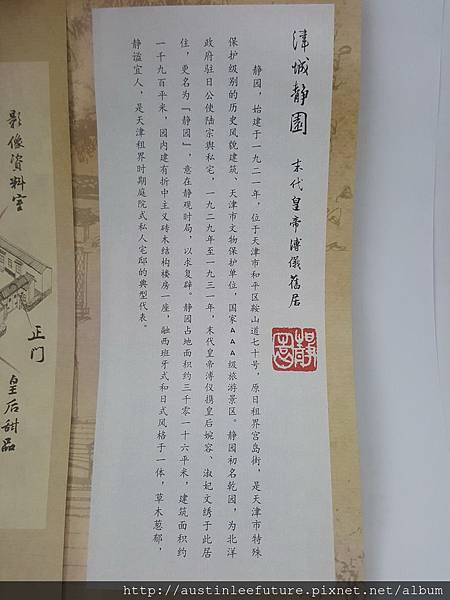 津城静園 末代皇帝溥儀舊居
静园，始建于一九二一年，位于天津市和平区鞍山道七十号，原日租界宫岛街，是天津市特殊
保护级别的历史风貌建筑、天津市文物保护单位，国家AAA级旅游景区。静园初名乾园，为北洋
政府驻日公使陆宗舆私宅，一九二九年至一九三一年，末代皇帝溥仪携皇后婉容、淑妃文绣于此居
住，更名为『静园』，意在静观时局，以求复辟。静园占地面积约三千零一十六平米，建筑面积约
一千九百平米，园内建有折中主义砖木结构楼房一座，融西班牙式和日式风格于一体，草木葱郁，
静谧宜人，是天津租界时期庭院式私人宅邸的典型代表。
正门
影像資料室
皇后甜品
http://austinleefuture.pixnet.net/album